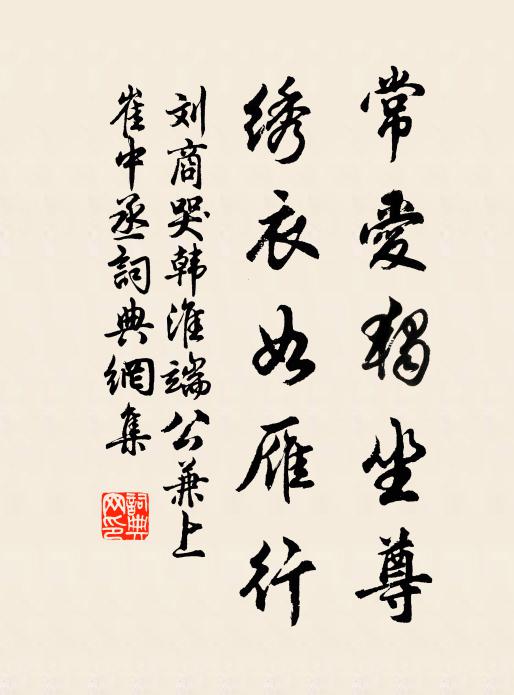 常愛獨坐尊
绣衣如雁行
刘商哭韩淮端公兼上
崔中丞詞典網集
詞典
网印